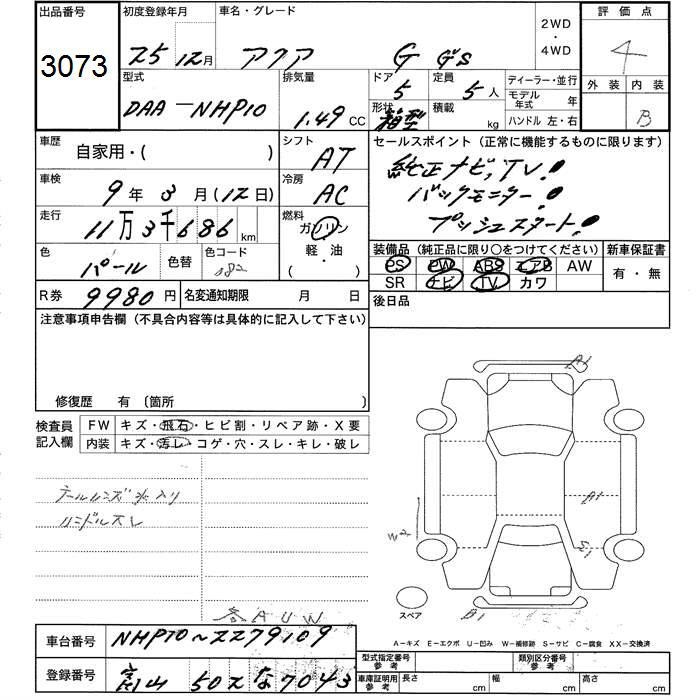 出品番号 初度登録年月 車名・グレード 2WD ・ 4WD 評価点
3073 25 12月 アクア G G's 4
型式 排気量 ドア 定員 ディーラー・並行 外装 内装
DAA-NHP10 1.49 CC 5 5人 モデル年式 年 B
形状 箱型 積載 kg ハンドル 左・右
車歴 自家用・( ) シフト AT セールスポイント(正常に機能するものに限ります)
車検 9年3月(12日) 冷房 AC 純正ナビ,TV!
バックモニター!
走行 11万3千686km 燃料 ガソリン 軽・油 プッシュスタート!
色 パール 色替 色コード 082 装備品(純正品に限り○をつけてください) 新車保証書
PS PW ABS エアB AW 有・無
SR ナビ TV カワ
R券 9980円 名変通知期限 月 日 後日品
注意事項申告欄(不具合内容等は具体的に記入して下さい)
修復歴 有 〔箇所 〕
検査員記入欄 FW キズ・飛石・ヒビ割・リペア跡・X要
内装 キズ・汚レ・コゲ・穴・スレ・キレ・破レ
テールレンズ水入り
ハンドルスレ
A1
A1
W2
S1
スペア B1
各AUW
A-キズ E-エクボ U-凹み W-補修跡 S-サビ C-腐食 XX-交換済
車台番号 NHP10~2279109 型式指定番号 参考 類別区分番号 参考
登録番号 富山 502 な 7043 車庫証明用 参考 長さ cm 幅 cm 高さ cm